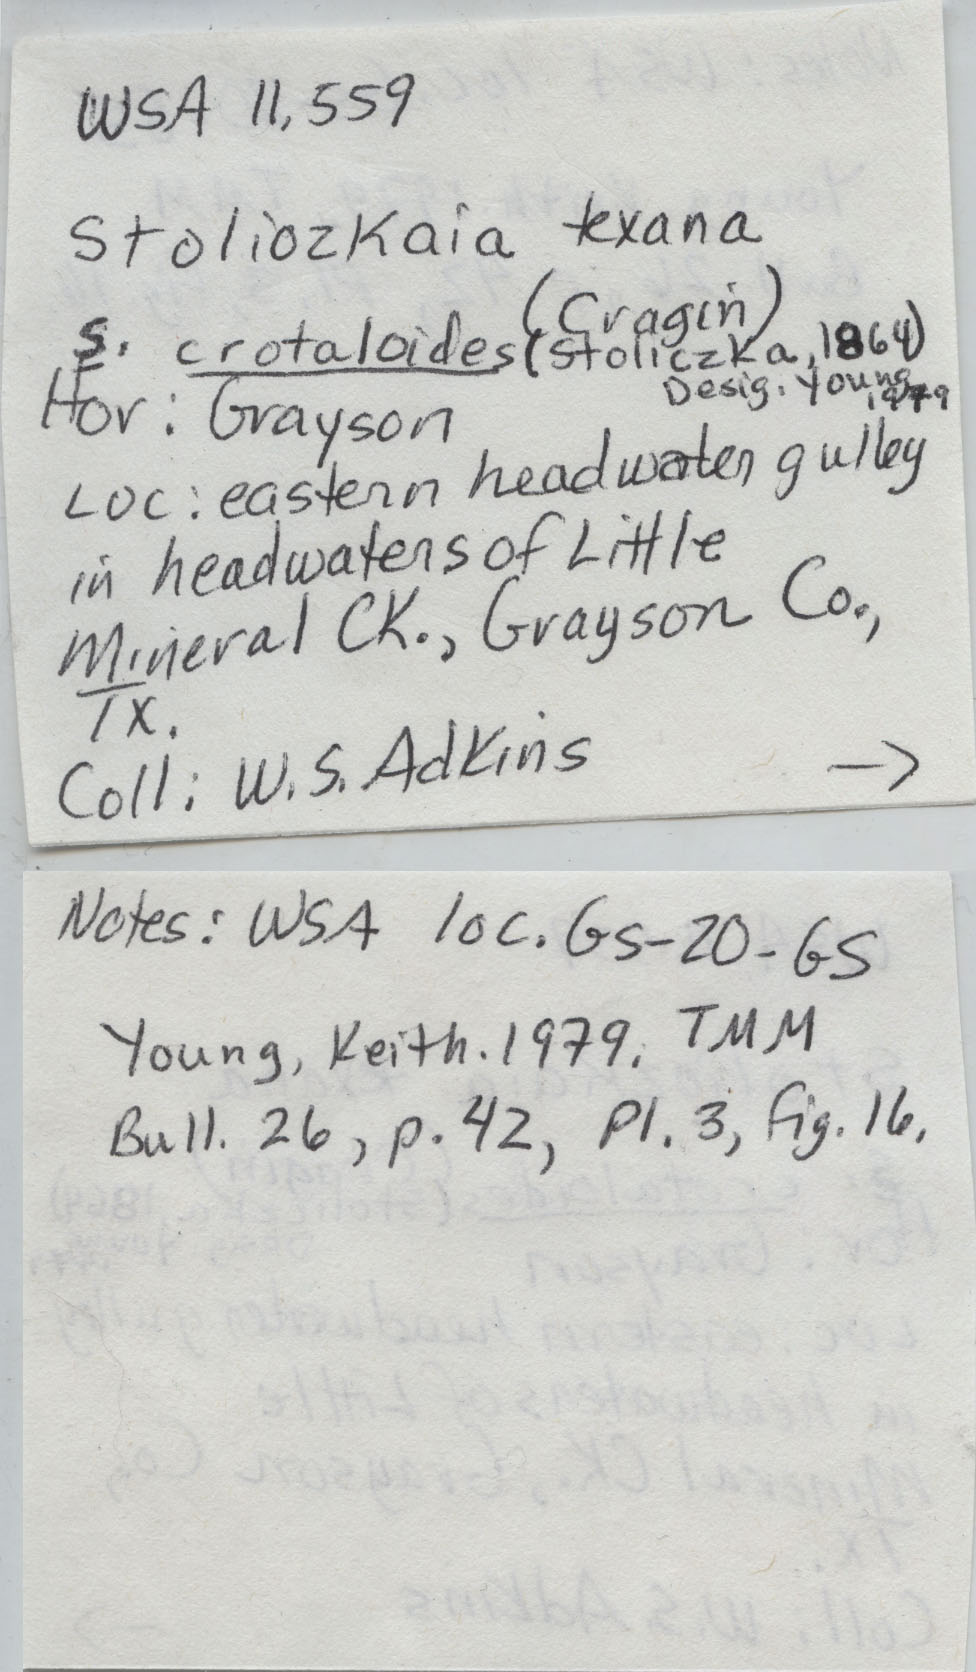 WSA 11,559
Stoliozkaia texana
(Cragin)
S. crotaloides (Stoliczka, 1864)
Desig. Young 1979
Hor: Grayson
Loc: eastern headwater gulley
in headwaters of Little
Mineral CK., Grayson Co.,
TX.
Coll: W.S. Adkins →
Notes: WSA loc. GS-20-GS
Young, Keith. 1979. TMM
Bull. 26, p. 42, Pl. 3, fig. 16.